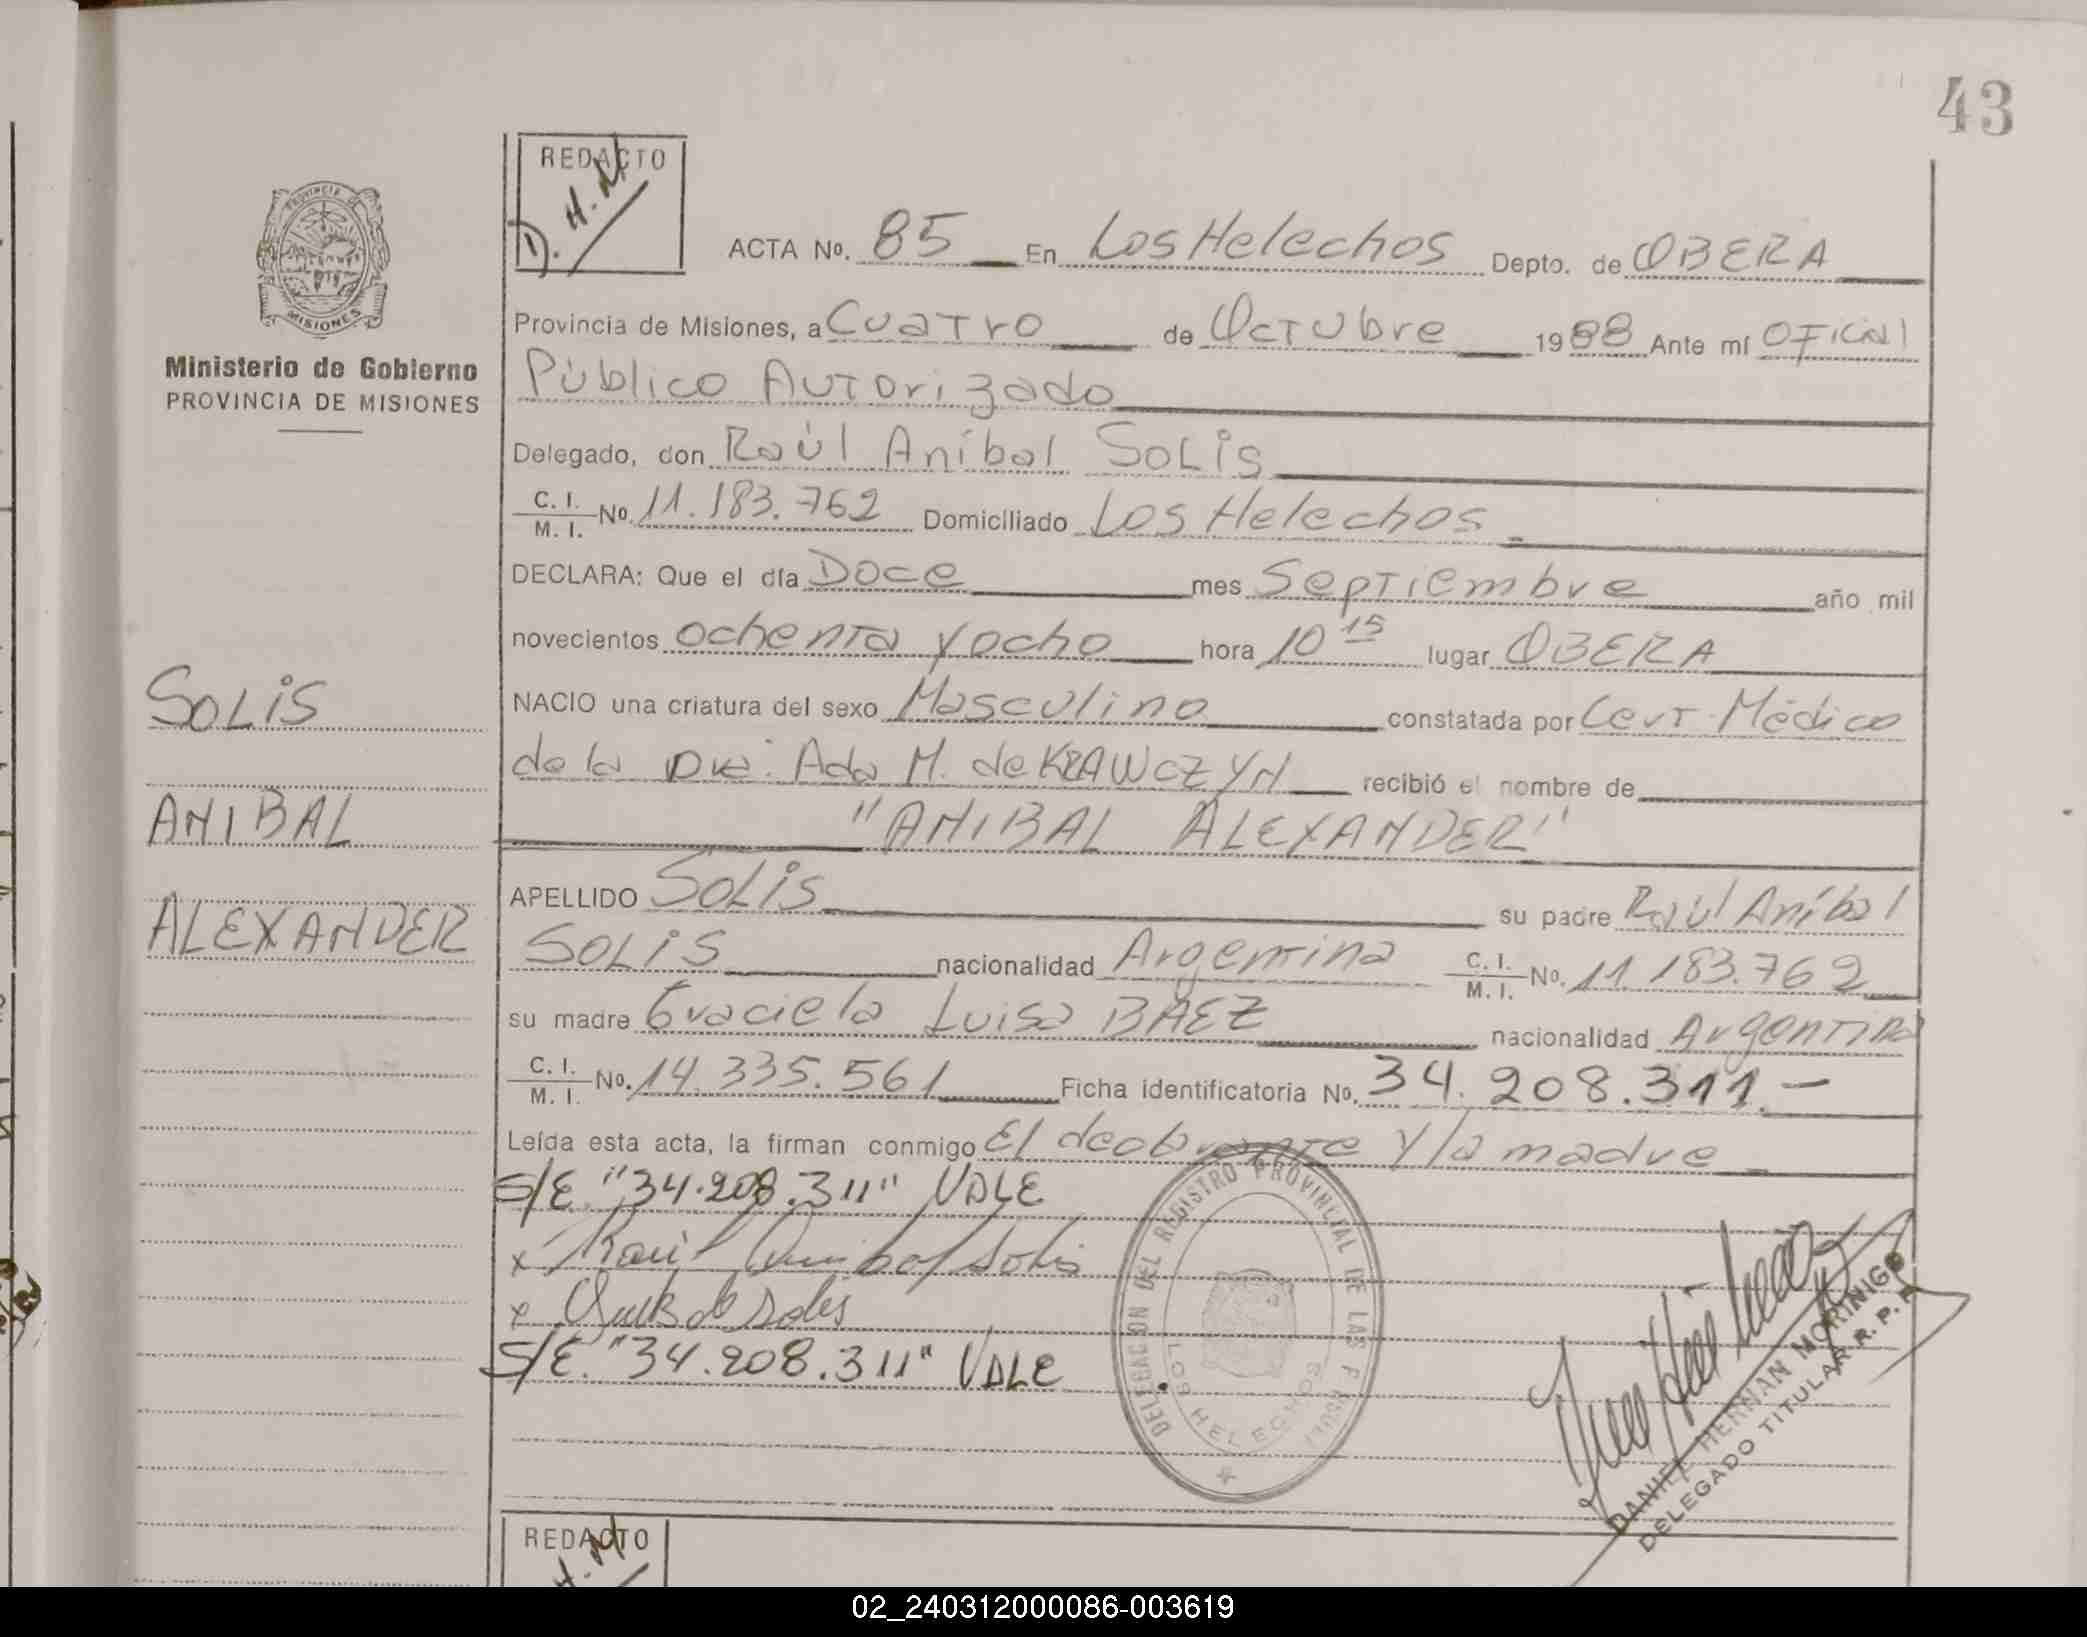 43
REDACTO
D. H. M
PROVINCIA DE
MISIONES
Ministerio de Gobierno
PROVINCIA DE MISIONES
ACTA Nº. 85 En Los Helechos Depto. de OBERA
Provincia de Misiones, a Cuatro de Octubre 1988 Ante mí Oficial
Público Autorizado
Delegado, don Raúl Aníbal Solis
C. I. / M. I. Nº. 11.183.762 Domiciliado Los Helechos
DECLARA: Que el día Doce mes Septiembre año mil
novecientos ochenta y ocho hora 10 15 lugar OBERA
NACIO una criatura del sexo Masculino constatada por Cert. Médico
de la Dra. Ada M. de KRAWCZYN recibió el nombre de
"ANIBAL ALEXANDER"
APELLIDO Solis su padre Raúl Aníbal
Solis nacionalidad Argentina C. I. / M. I. Nº. 11.183.762
su madre Graciela Luisa BAEZ nacionalidad Argentina
C. I. / M. I. Nº. 14.335.561 Ficha identificatoria Nº. 34.208.311.-
Leída esta acta, la firman conmigo El declarante y la madre
S/E. "34.208.311" VALE
x Raúl Anibal Solis
x de Solis
S/E. "34.208.311" VALE
SOLIS
ANIBAL
ALEXANDER
DELEGACION DEL REGISTRO PROVINCIAL DE LAS PERSONAS
LOS HELECHOS
DANIEL HERNAN MORINIGO
DELEGADO TITULAR R. P. P.
REDACTO
H. M
02_240312000086-003619